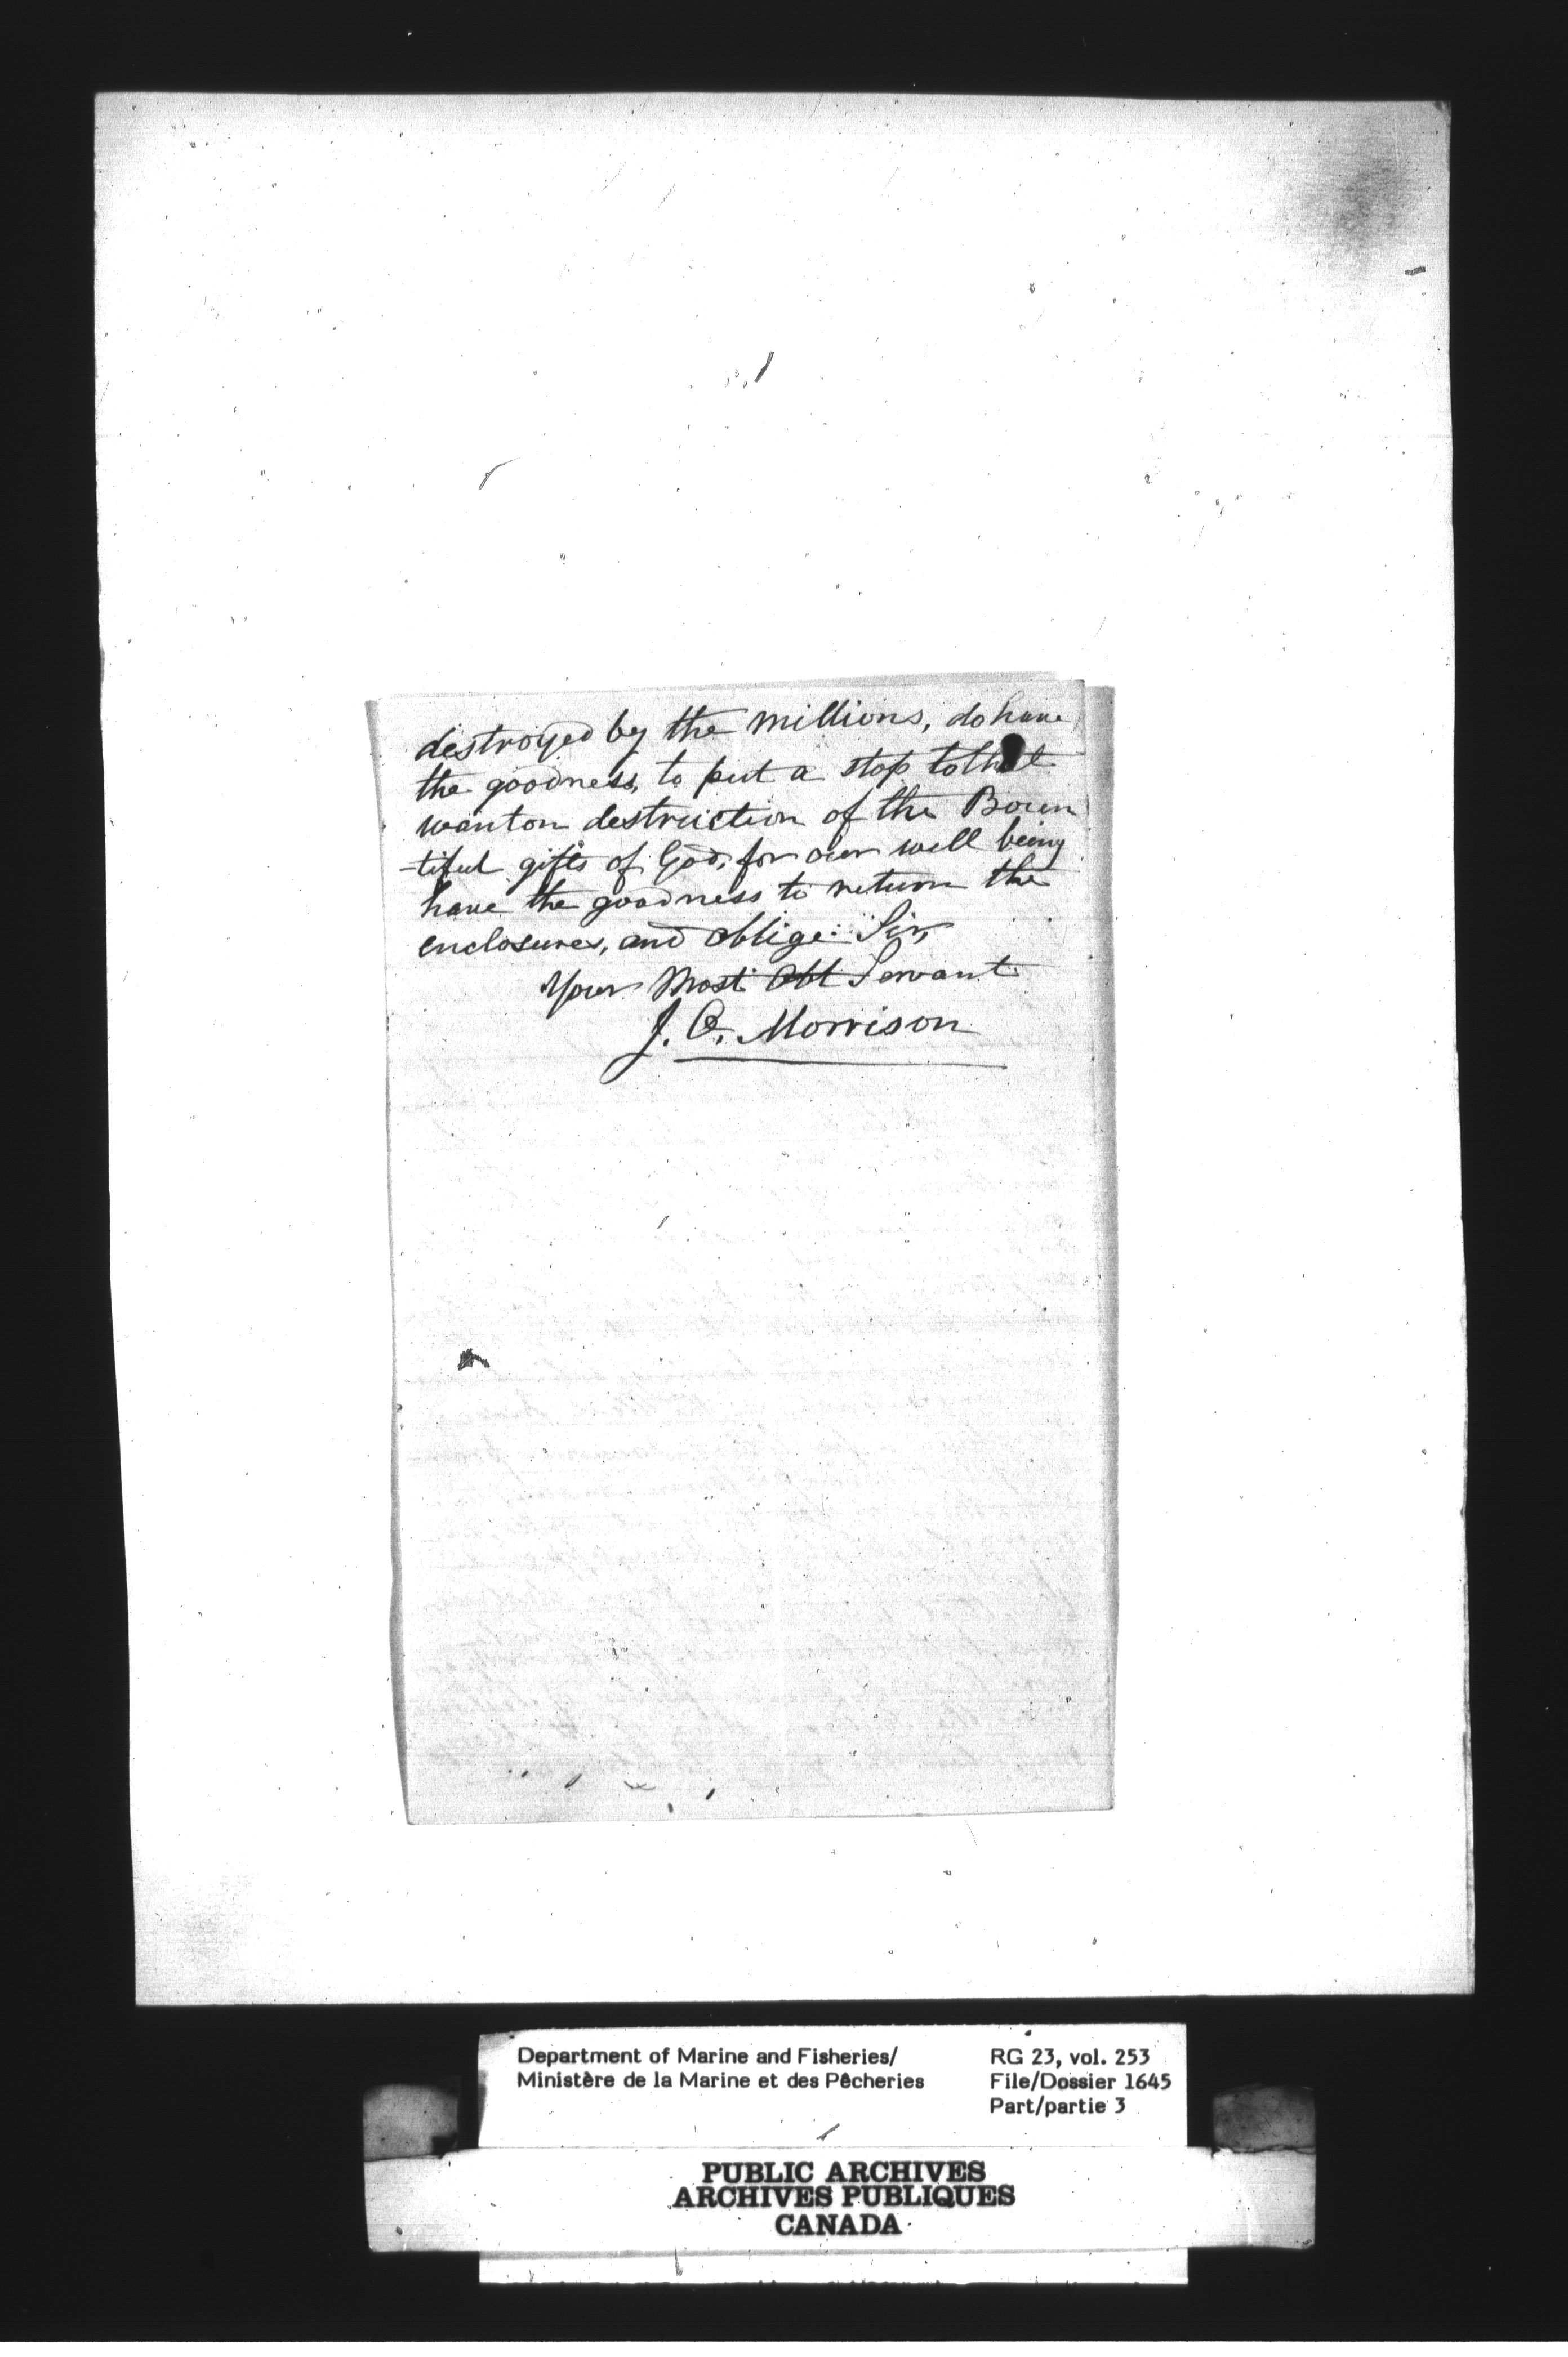 destroyed by the millions, do have
the goodness, to put a stop to that
wanton destruction of the Boun
-tiful gifts of God, for our well being
have the goodness to return the
enclosures, and oblige Sir,
Your Most Obt Servant
J. C. Morrison
Department of Marine and Fisheries/
Ministère de la Marine et des Pêcheries
RG 23, vol. 253
File/Dossier 1645
Part/partie 3
PUBLIC ARCHIVES
ARCHIVES PUBLIQUES
CANADA